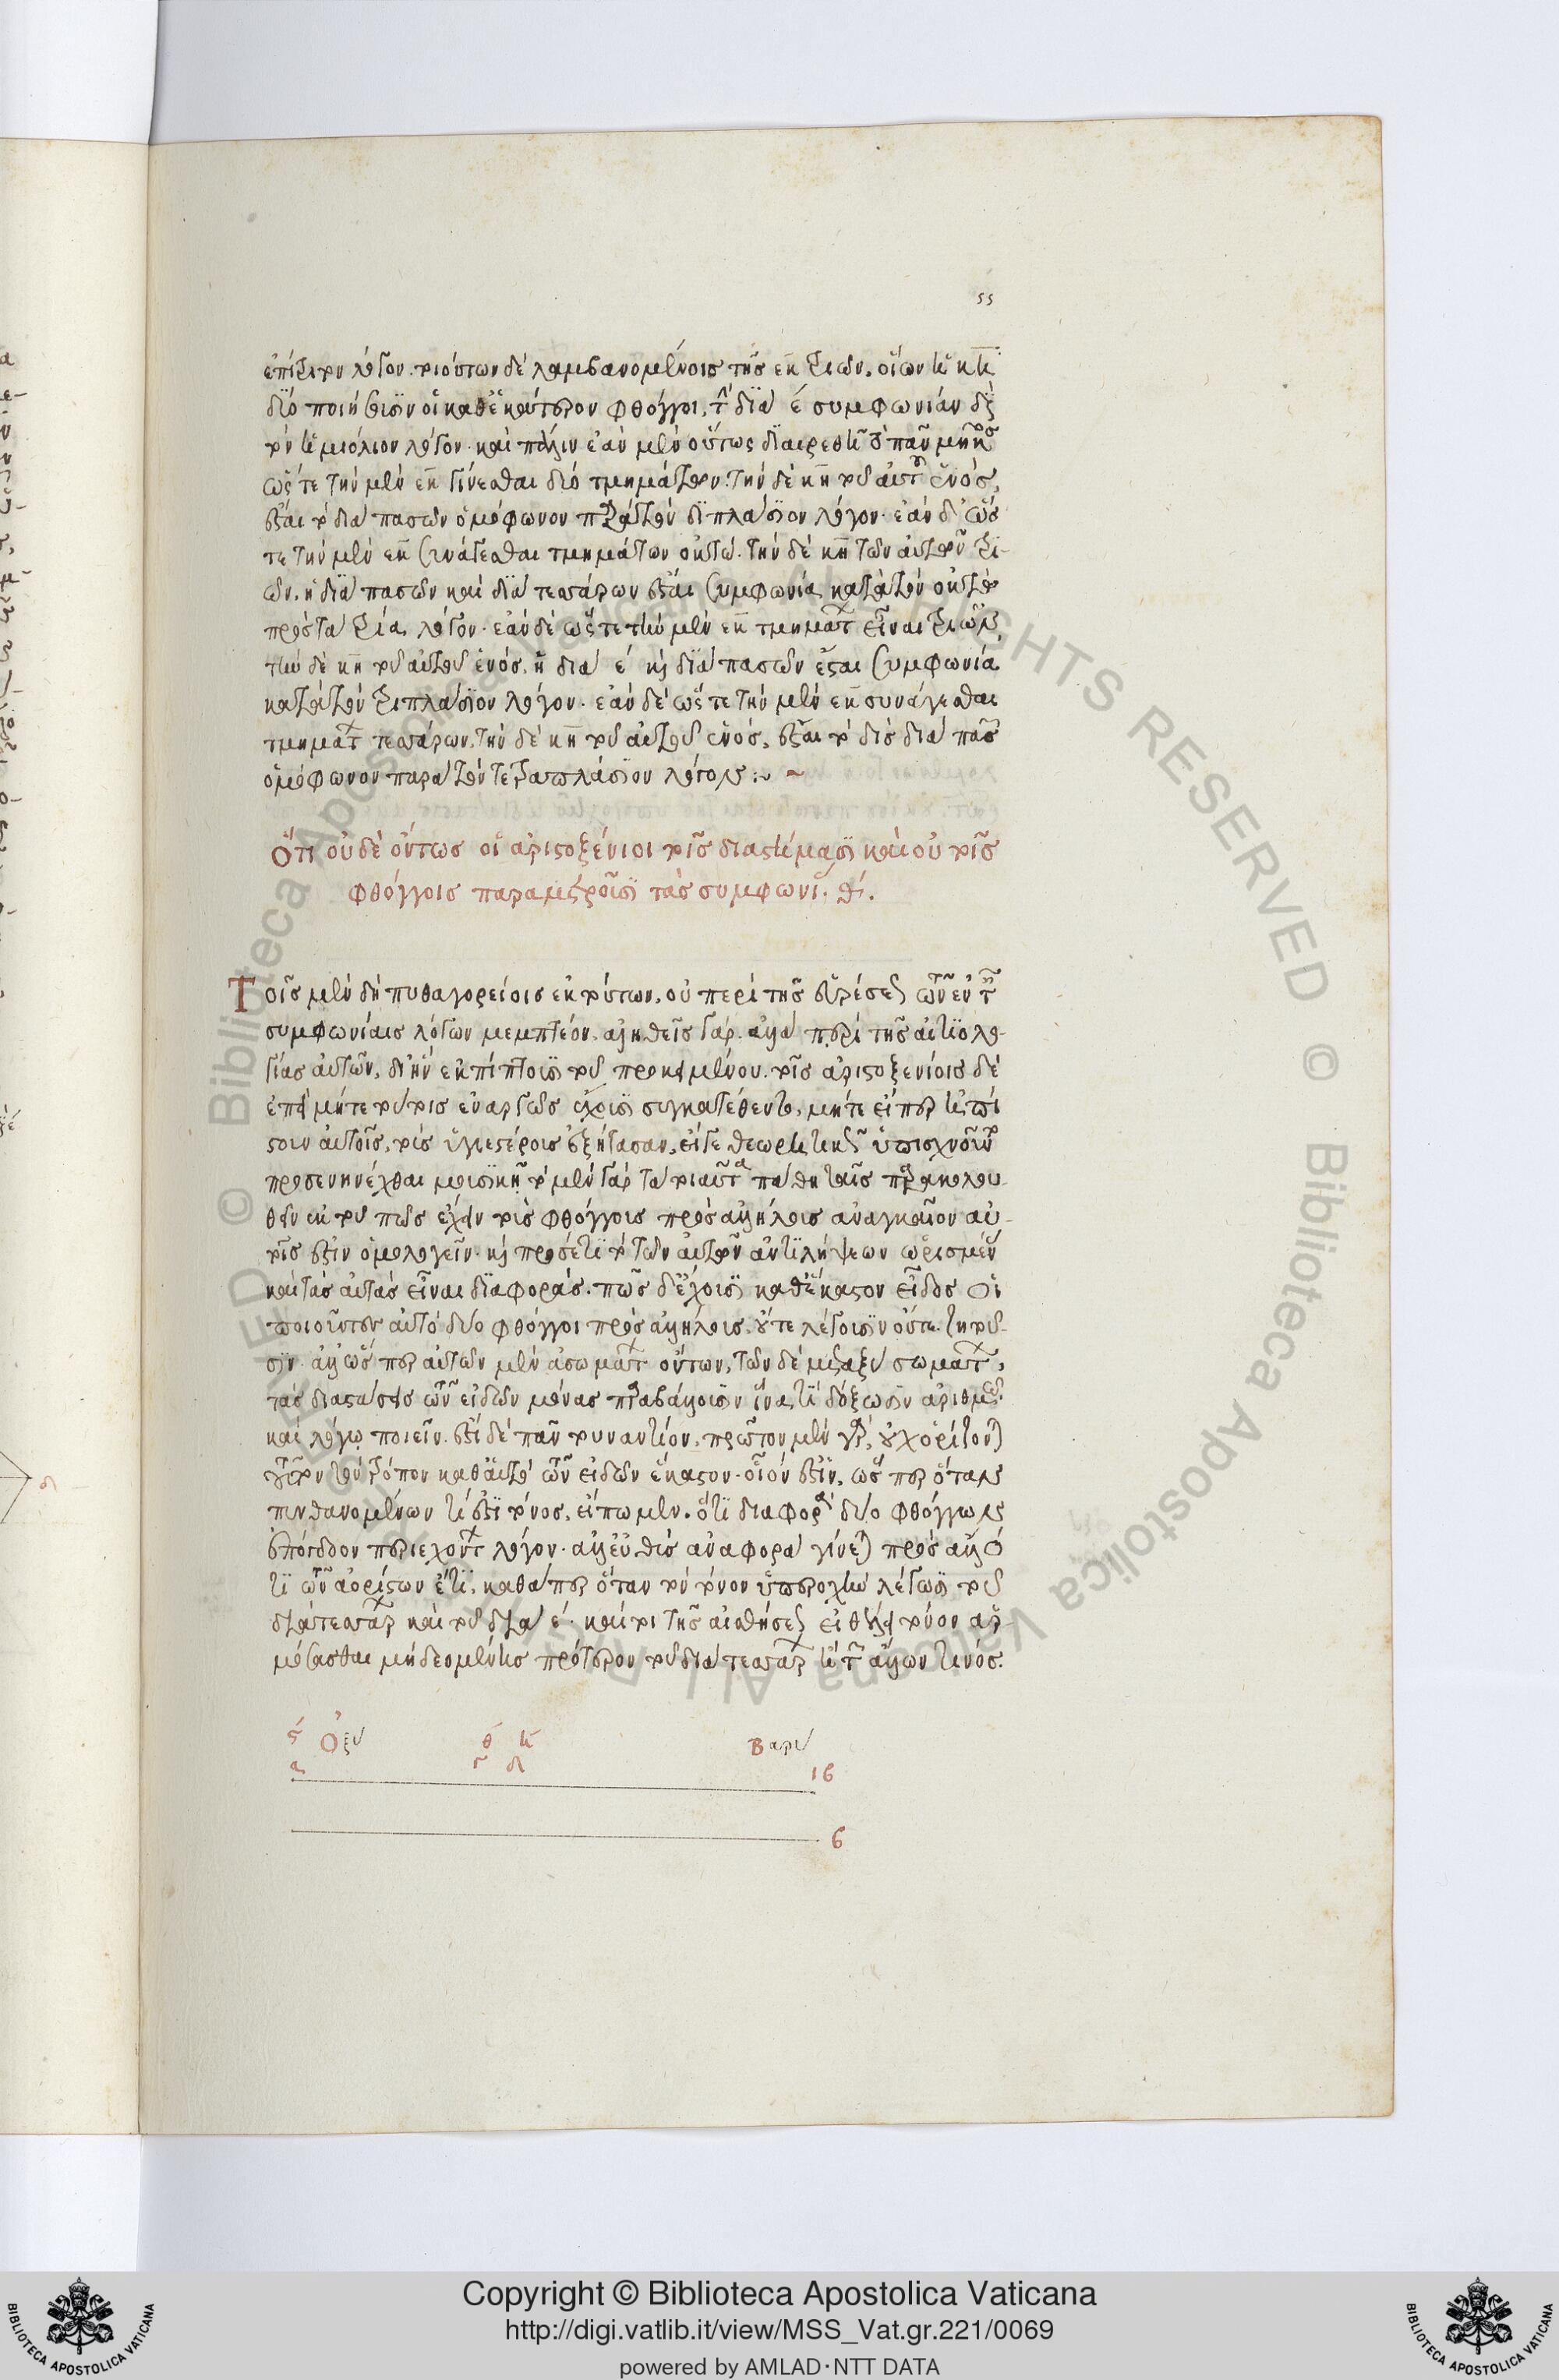 55
ἐπίτριτον λόγον. τοιούτων δὲ λαμβανομένοις τῆς εκ τριῶν, οἵων ἡ κη
δύο ποιήσουσιν οἱ καθ' ἑκάτερον φθόγγοι, τὴν διὰ ε συμφωνίαν διὰ
τὸν ἡμιόλιον λόγον. καὶ πάλιν ἐὰν μὲν οὕτως διαιρεθῇ τὸ πᾶν μῆκος
ὥστε τὴν μὲν εκ γίνεσθαι δύο τμημάτων. τὴν δὲ κη τοῦ αὐτοῦ ἑνός,
ἔσται τὸ διὰ πασῶν ὁμόφωνον παρὰ τὸν διπλάσιον λόγον. ἐὰν δ' ὥσ
τε τὴν μὲν εκ συνάγεσθαι τμημάτων ὀκτώ. τὴν δὲ κη τῶν αὐτῶν τρι-
ῶν, ἡ διὰ πασῶν καὶ διὰ τεσσάρων ἔσται συμφωνία κατὰ τὸν ὀκτὼ
πρὸς τὰ τρία λόγον. ἐὰν δὲ ὥστε τὴν μὲν εκ τμημάτ εἶναι τριῶν,
τὴν δὲ κη τοῦ αὐτοῦ ἑνός, ἡ διὰ ε καὶ διὰ πασῶν ἔσται συμφωνία
κατὰ τὸν τριπλάσιον λόγον. ἐὰν δὲ ὥστε τὴν μὲν εκ συνάγεσθαι
τμημάτ τεσσάρων, τὴν δὲ κη τοῦ αὐτοῦ ἑνός, ἔσται τὸ δὶς διὰ πασ
ὁμόφωνον παρὰ τὸν τετραπλάσιον λόγον :~ ~
Ὅτι οὐ δεόντως οἱ ἀριστοξένιοι τοῖς διαστήμασι καὶ οὐ τοῖς
φθόγγοις παραμετροῦσι τὰς συμφωνί. θ.
Τοῖς μὲν δὴ πυθαγορείοις ἐκ τούτων, οὐ περὶ τῆς εὑρέσεως τῶν ἐν τ
συμφωνίαις λόγων μεμπτέον. ἀληθεῖς γάρ. ἀλλὰ περὶ τῆς αἰτιολο-
γίας αὐτῶν, δι' ἣν ἐκπίπτουσι τοῦ προκειμένου. τοῖς ἀριστοξενίοις δὲ
ἐπεὶ μήτε τούτοις ἐναργῶς ἔχουσι συγκατέθεντο, μήτε εἴπερ ἠπί
στουν αὐτοῖς, τοὺς ὑγιεστέρους ἐξήτασαν, εἴγε θεωρητικῶς ὑπισχνοῦντο
προσενηνέχθαι μουσικῇ τὸ μὲν γὰρ τὰ τοιαῦτα πάθη ταῖς παρακολου
θεῖν ἐκ τοῦ πῶς ἔχειν τοὺς φθόγγους πρὸς ἀλλήλους ἀναγκαῖον αὐ-
τοῖς ἐστὶν ὁμολογεῖν. καὶ προσέτι τὸ τῶν αὐτῶν ἀντιλήψεων ὡρισμέν
καὶ τὰς αὐτὰς εἶναι διαφοράς. πῶς δὲ ἔχουσι καθ' ἕκαστον εἶδος οἱ
ποιοῦντες αὐτὸ δύο φθόγγοι πρὸς ἀλλήλους, οὔτε λέγουσιν οὔτε ζητοῦ-
σιν. ἀλλ' ὥσπερ αὐτῶν μὲν ἀσωμάτ ὄντων, τῶν δὲ μεταξὺ σωμάτ,
τὰς διαστάσεις τῶν εἰδῶν μόνας παραβάλλουσιν ἵνα τι δόξωσιν ἀριθμῷ
καὶ λόγῳ ποιεῖν. ἔστι δὲ πᾶν τουναντίον. πρῶτον μὲν γάρ, οὐχ ὁρίζονται
τοῦτον τὸν τρόπον καθ' αὑτὸ τῶν εἰδῶν ἕκαστον. οἷόν ἐστιν, ὥσπερ ὅταν
πυνθανομένων τί ἐστι τόνος, εἴπωμεν. ὅτι διαφορὰ δύο φθόγγων
ἐπόγδοον περιεχόντ λόγον. ἀλλ' εὐθὺς ἀναφορὰ γίνεται πρὸς ἄλλό
τι τῶν ἀορίστων ἔτι, καθάπερ ὅταν τὸν τόνον ὑπεροχὴν λέγωσι τοῦ
διὰ τεσσάρ καὶ τοῦ διὰ ε. καίτοι τῆς αἰσθήσεως εἰ θέλοι τόνον ἁρ-
μόσασθαι μὴ δεομένης πρότερον τοῦ διὰ τεσσάρ ἢ τ ἄλλων τινός.
ς Ὀξὺ θ η Βαρὺ
α γ δ ιβ
β
Copyright © Biblioteca Apostolica Vaticana
http://digi.vatlib.it/view/MSS_Vat.gr.221/0069
powered by AMLAD·NTT DATA